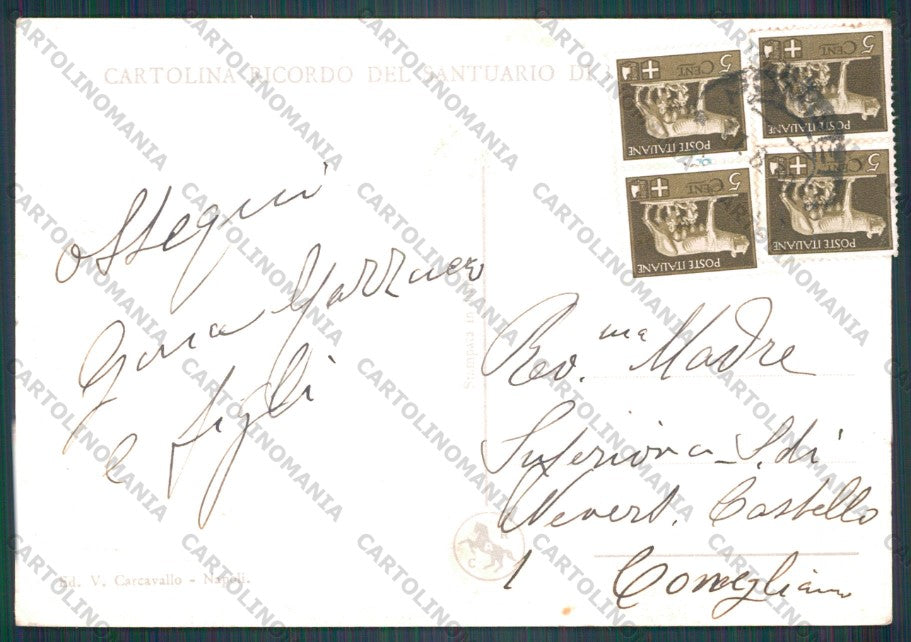 CARTOLINA RICORDO DEL SANTUARIO DI
Ossequi
e figli
Stampata in
Rev.ma Madre
Superiora S. di
Nevers. Castello
Conegliano
Ed. V. Carcavallo - Napoli.
C R
5 CENT
POSTE ITALIANE
5 CENT
POSTE ITALIANE
5 CENT
POSTE ITALIANE
5 CENT
POSTE ITALIANE
CARTOLINOMANIA